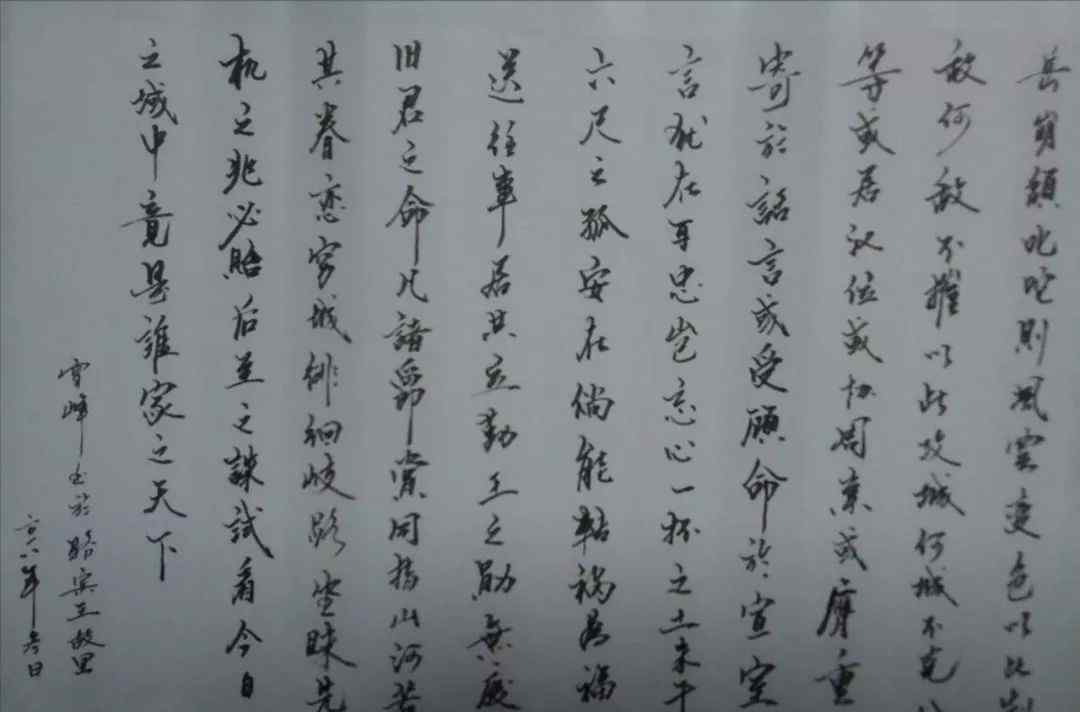 岳崩頹叱咤則風雲变色以此
敌何敌不摧以此攻城何城不克
等或居汉位或协周亲或膺重
寄於詔言或受顾命於宣室
言犹在耳忠岂忘心一抔之土未干
六尺之孤安在倘能转祸為福
送往事居共立勤王之勋無廢
旧君之命凡諸爵賞同指山河若
其眷恋穷城徘徊歧路坐昧先
机之兆必贻后至之誅試看今日
之域中竟是誰家之天下
雪峰书於骆宾王故里
年冬日